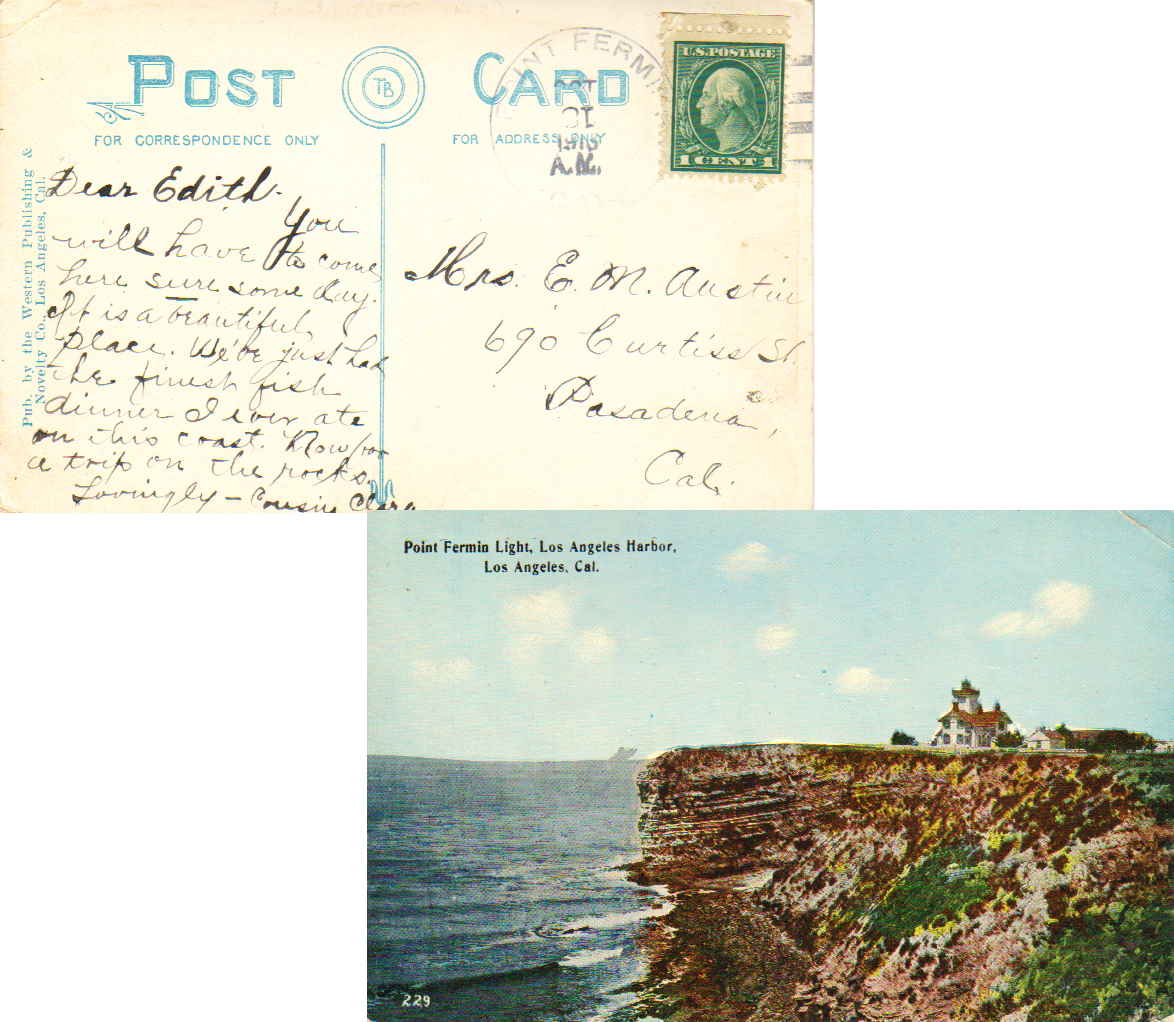 POST CARD
TB
FOR CORRESPONDENCE ONLY
FOR ADDRESS ONLY
POINT FERMIN
A.M.
U.S. POSTAGE
1 CENT 1
Pub. by the Western Publishing &
Novelty Co., Los Angeles, Cal.
Dear Edith.
You
will have to come
here sure some day.
It is a beautiful
place. We've just had
the finest fish
dinner I ever ate
on this coast. Now for
a trip on the rocks.
Lovingly - Cousin Clara
Mrs. E. M. Austin
690 Curtiss St.
Pasadena,
Cal.
Point Fermin Light, Los Angeles Harbor,
Los Angeles, Cal.
229